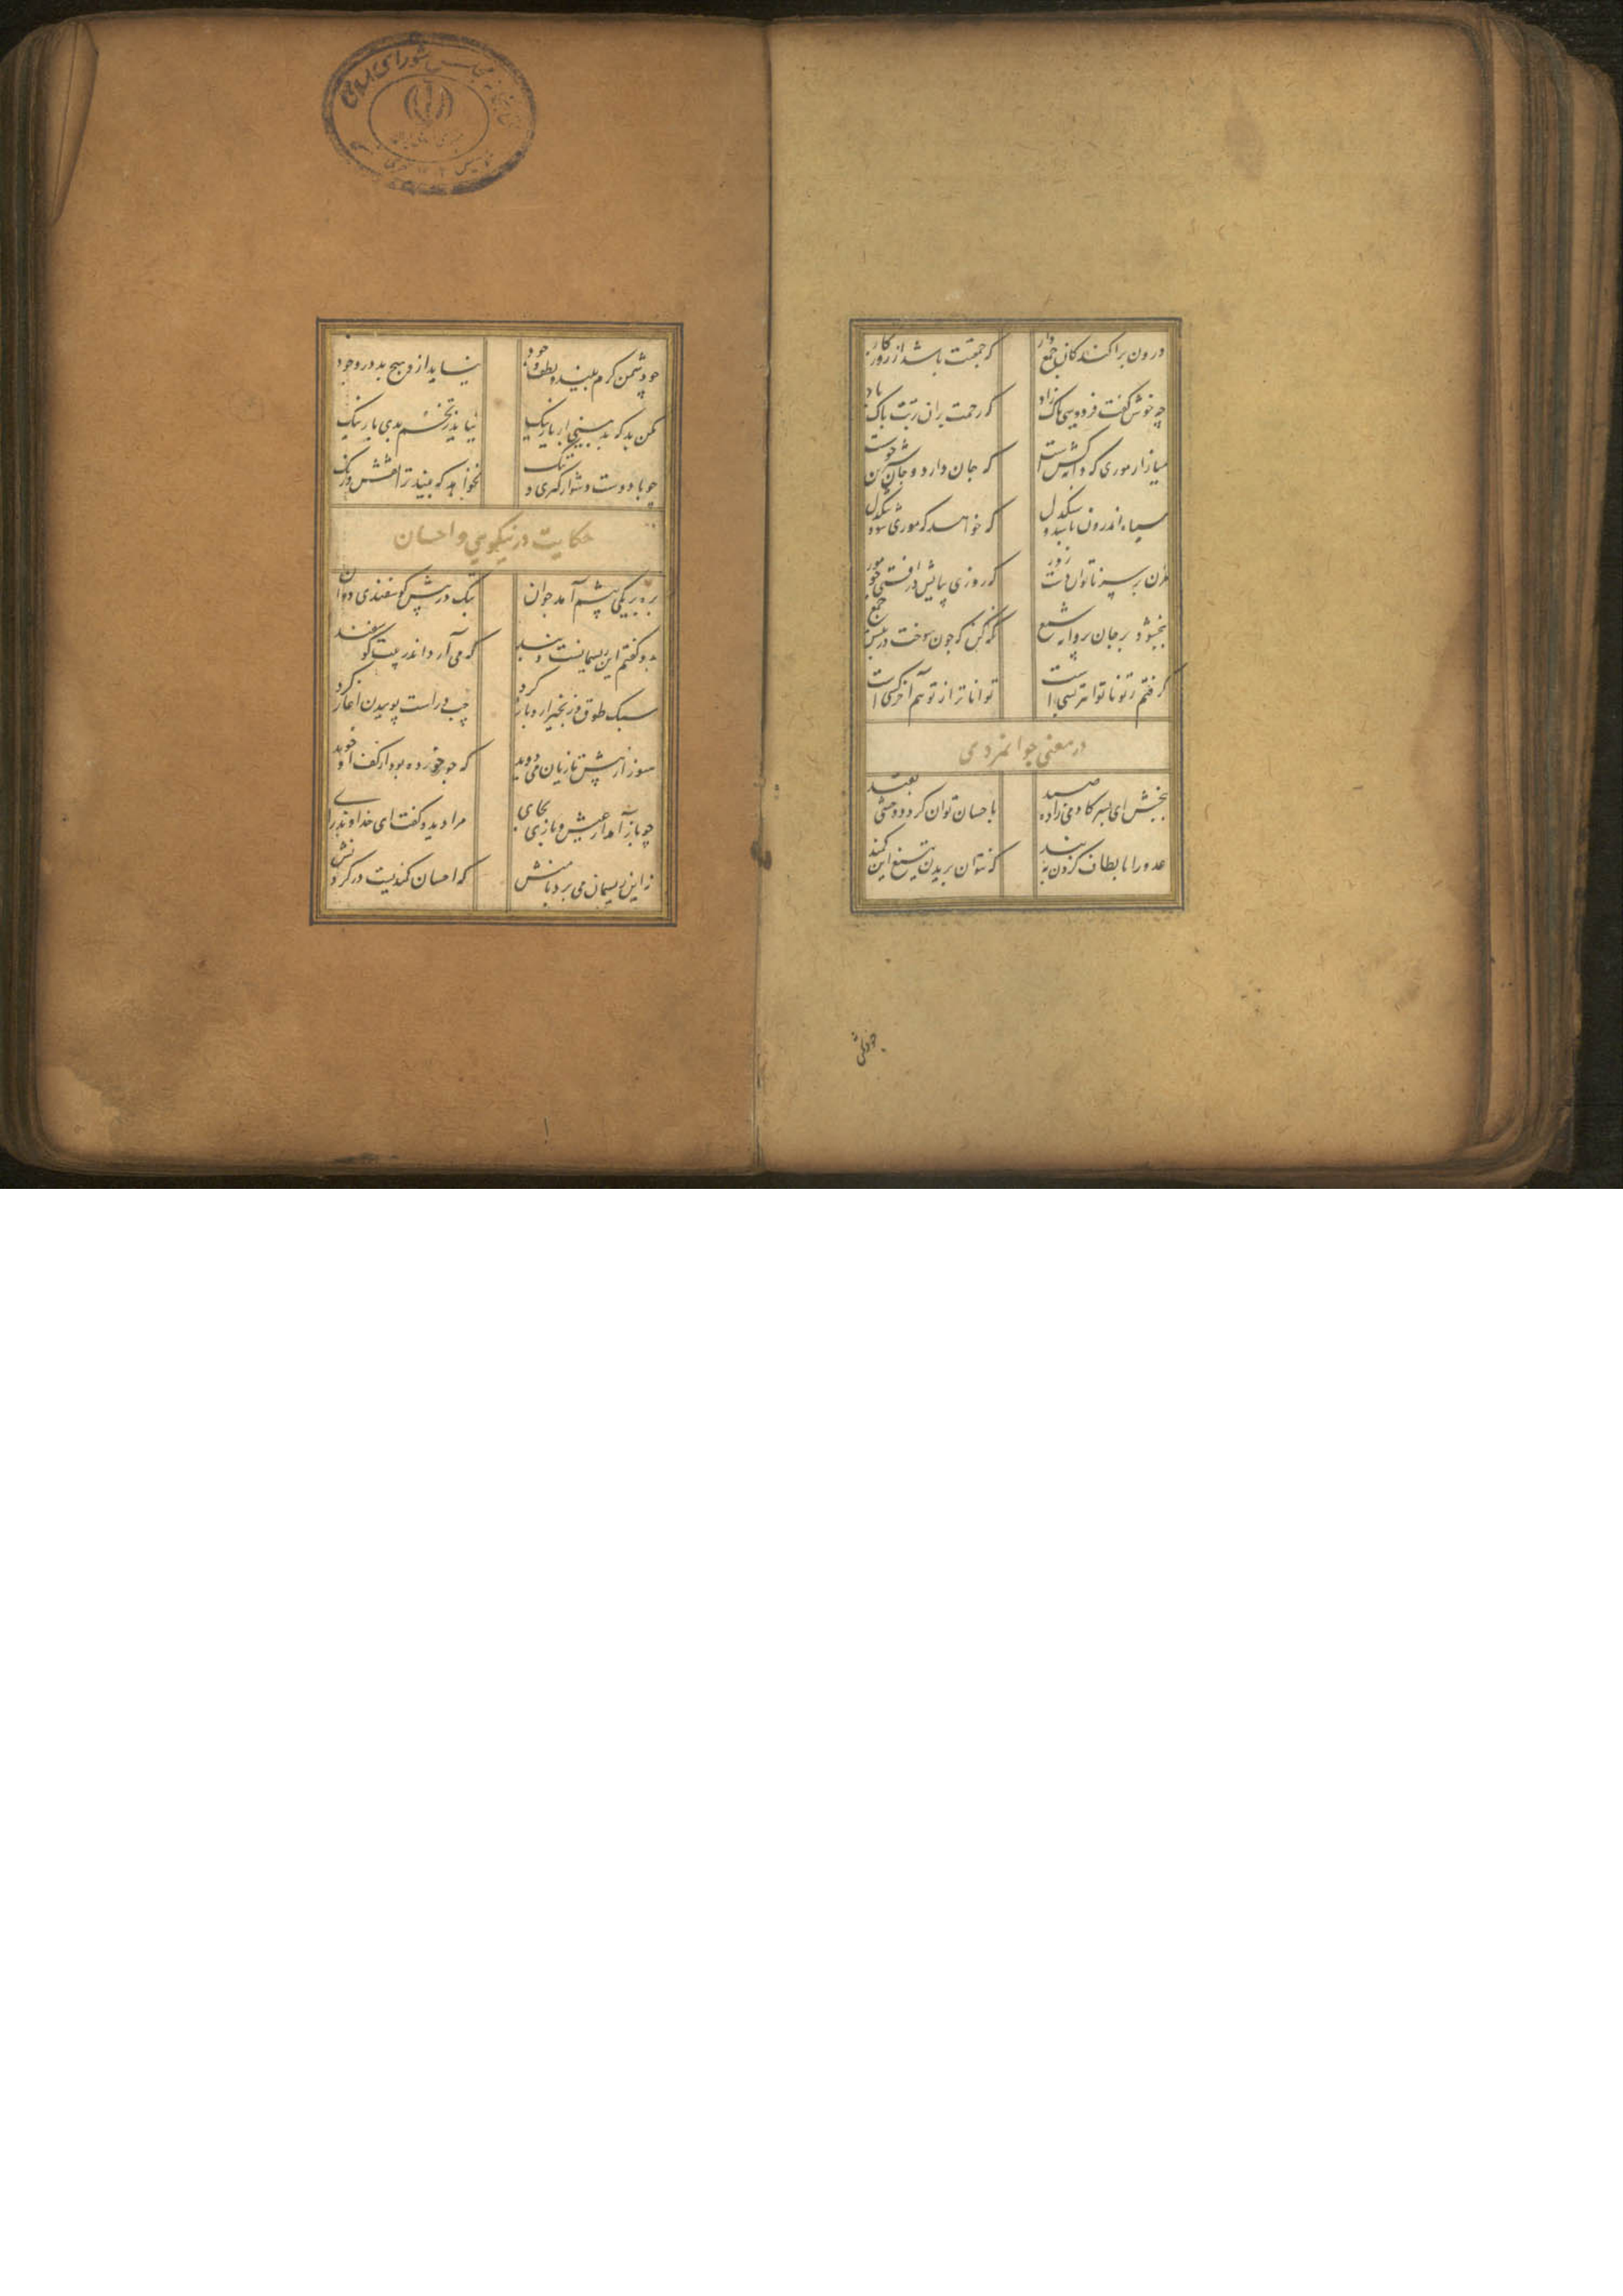 درون پراکندکان جمع دار
که جمعیت باشد از روزکار
چه خوش کفت فردوسی پاک زاد
که رحمت بران تربت پاک باد
میازار موری که دانه کش است
که جان دارد و جان شیرین خوشست
سیاه اندرون باشد و سنکدل
که خواهد که موری شود تنکدل
مزن بر سر ناتوان دست زور
که روزی بپایش در افتی چو مور
نبخشود بر جان پروانه شمع
نکه کن که چون سوخت در پیش جمع
کرفتم ز تو ناتوانتر بسی است
تواناتر از تو هم آخر کسی است
در معنی جوانمردی
ببخش ای پسر کادمی زاده صید
باحسان توان کرد و وحشی بقید
عدو را بالطاف کردن ببند
که نتوان بریدن بتیغ این کمند
چو دشمن
چو دشمن کرم بیند و لطف و جود
نیاید ازو هیچ بد در وجود
مکن بد که بد بینی از یار نیک
نیاید ز تخم بدی بار نیک
چو با دوست دشوار کیری و تنک
نخواهد که بیند ترا نقش و رنک
حکایت در نیکویی و احسان
بره بر یکی پیشم آمد جوان
بتک در پیش کوسفندی دوان
بدو کفتم این ریسمانست و بند
که می آرد اندر پیت کوسفند
سبک طوق و زنجیر ازو باز کرد
چپ و راست پوییدن آغاز کرد
هنوز از پیش تازیان می دوید
که جو خورده بود از کف او خوید
چو باز آمد از عیش و بازی بجای
مرا دید و کفت ای خداوند رای
نه این ریسمان می برد با منش
که احسان کمندیست در کردنش